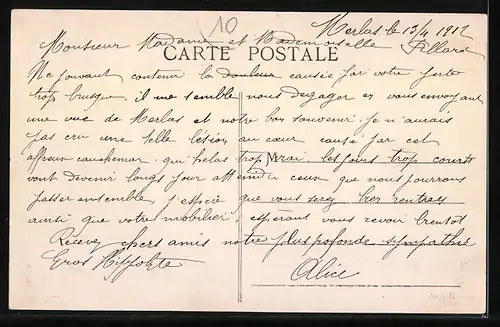 10
Merlas le 13/4 1912
Monsieur Madame et Mademoiselle Pillard
CARTE POSTALE
Ne pouvant contenir la douleur causée par votre perte
trop brusque, il me semble nous degager en vous envoyant
une vue de Merlas et notre bon souvenir. je n'aurais
pas cru une telle lésion au cœur causé par cet
affreux cauchemar. qui helas trop vrai. les jours trop courts
vont devenir longs pour attendre ceux que nous pourrons
passer ensemble j'espère que vous serez bien rentrés
ainsi que votre mobilier esperant vous revoir bientot
Recevez chers amis notre plus profonde sympathie
Gros Hippolyte
Alice